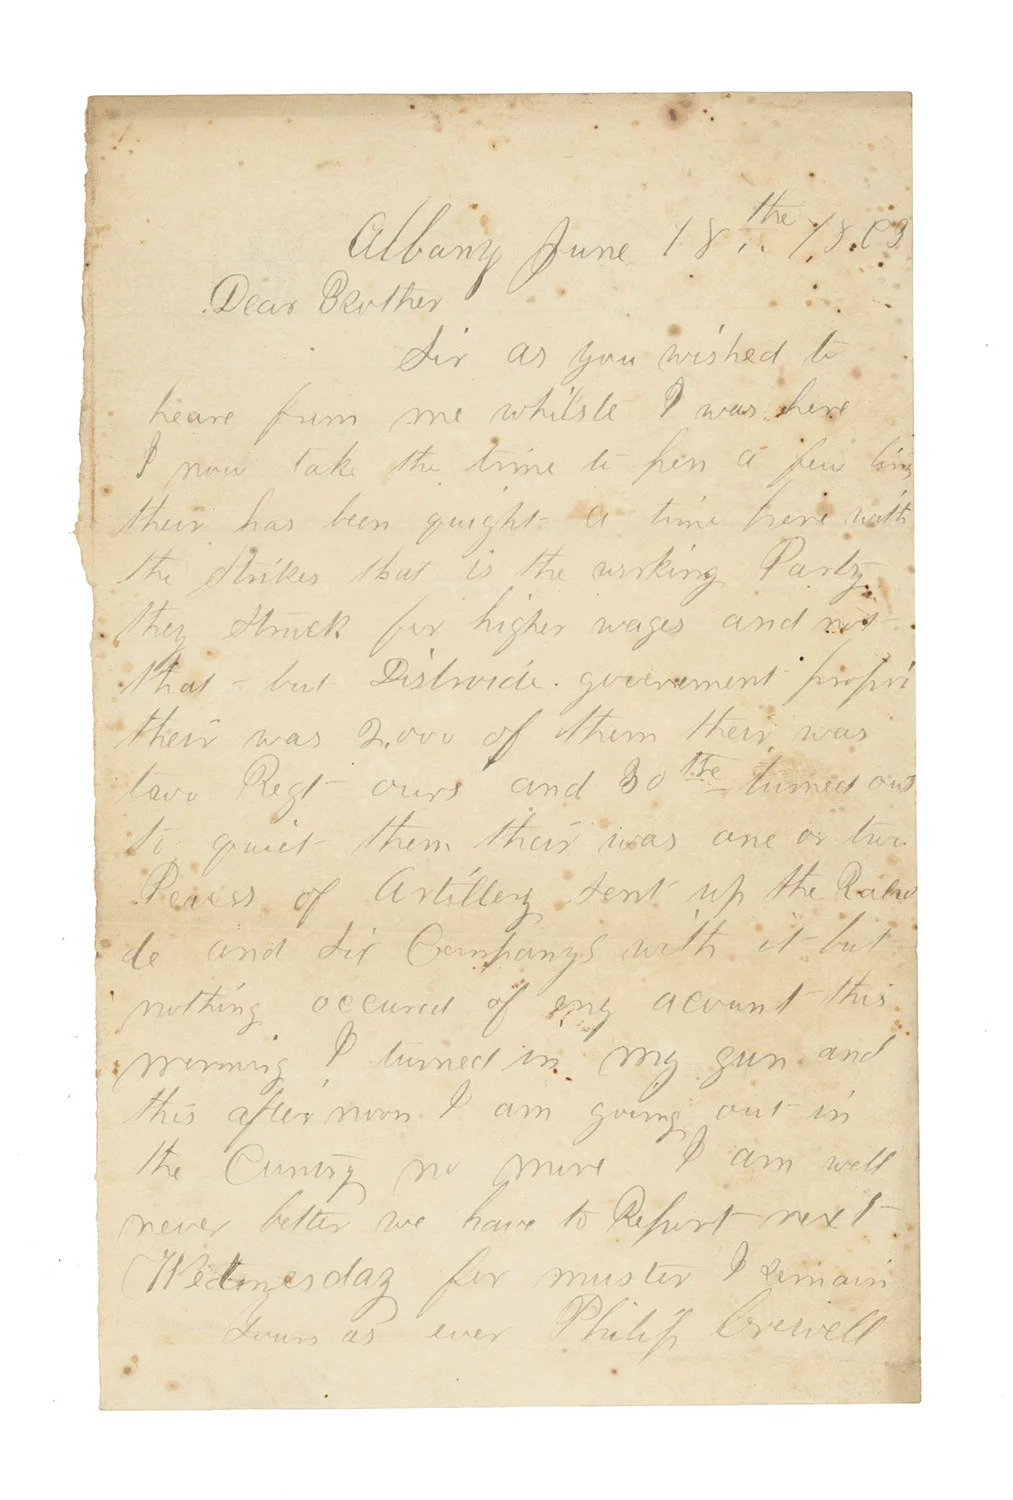 Albany June 18.. the 1863
Dear Brother
Sir as you wished to
heare frum me whilste I was here
I now take the time to pen a few lins
their has been quight a time here with
the Strikes that is the working Party
they Struck for higher wages and not
that but Distroide. government propri
their was 2,000 of them their was
two Regt ours and 30 the turned out
to quiet them their was one or two
Peices of Artillery sent up the Ralro
de and Six Companys with it but
nothing occured of eny acount this
morning I turned in my gun and
this after noon I am going out in
the Cuntry no more I am well
never better we have to Report next
Wednesday for muster I remain
Yours as ever Philip Creivell